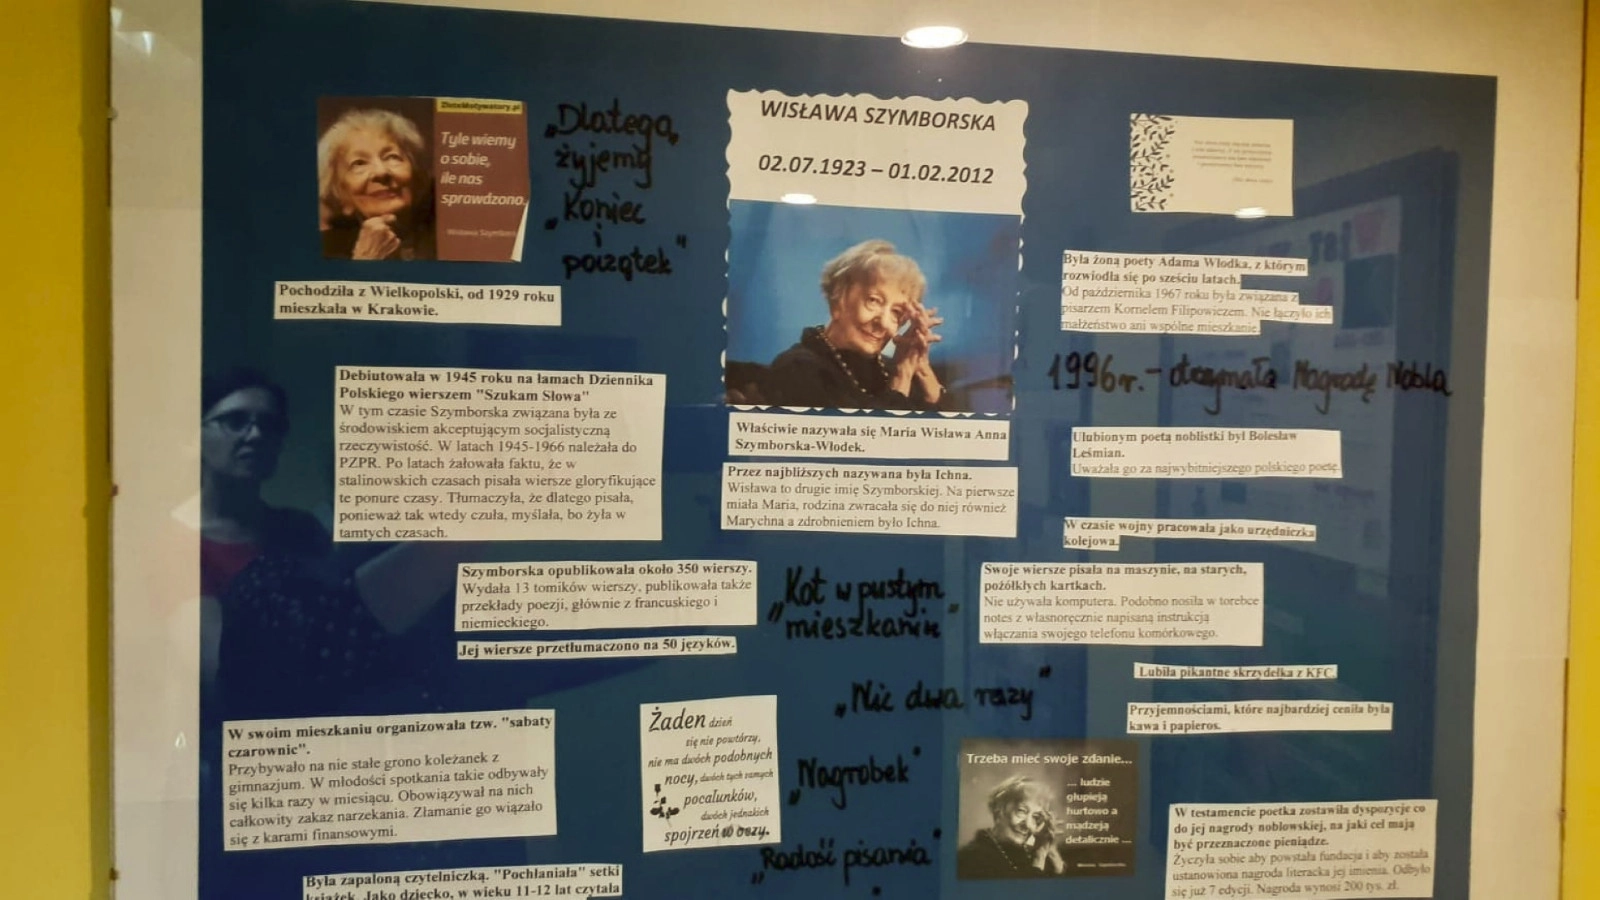 ZloteMotywatory.pl
Tyle wiemy
o sobie,
ile nas
sprawdzono.
Wisława Szymbors
„Dlatego
żyjemy"
„Koniec
i
początek"
WISŁAWA SZYMBORSKA
02.07.1923 – 01.02.2012
Pochodziła z Wielkopolski, od 1929 roku
mieszkała w Krakowie.
Była żoną poety Adama Włodka, z którym
rozwiodła się po sześciu latach.
Od października 1967 roku była związana z
pisarzem Kornelem Filipowiczem. Nie łączyło ich
małżeństwo ani wspólne mieszkanie.
1996r. - otrzymała Nagrodę Nobla
Debiutowała w 1945 roku na łamach Dziennika
Polskiego wierszem "Szukam Słowa"
W tym czasie Szymborska związana była ze
środowiskiem akceptującym socjalistyczną
rzeczywistość. W latach 1945-1966 należała do
PZPR. Po latach żałowała faktu, że w
stalinowskich czasach pisała wiersze gloryfikujące
te ponure czasy. Tłumaczyła, że dlatego pisała,
ponieważ tak wtedy czuła, myślała, bo żyła w
tamtych czasach.
Właściwie nazywała się Maria Wisława Anna
Szymborska-Włodek.
Przez najbliższych nazywana była Ichna.
Wisława to drugie imię Szymborskiej. Na pierwsze
miała Maria, rodzina zwracała się do niej również
Marychna a zdrobnieniem było Ichna.
Ulubionym poetą noblistki był Bolesław
Leśmian.
Uważała go za najwybitniejszego polskiego poetę.
W czasie wojny pracowała jako urzędniczka
kolejowa.
Szymborska opublikowała około 350 wierszy.
Wydała 13 tomików wierszy, publikowała także
przekłady poezji, głównie z francuskiego i
niemieckiego.
Jej wiersze przetłumaczono na 50 języków.
„Kot w pustym
mieszkaniu"
Swoje wiersze pisała na maszynie, na starych,
pożółkłych kartkach.
Nie używała komputera. Podobno nosiła w torebce
notes z własnoręcznie napisaną instrukcją
włączania swojego telefonu komórkowego.
Lubiła pikantne skrzydełka z KFC.
Przyjemnościami, które najbardziej ceniła była
kawa i papieros.
„Nic dwa razy"
W swoim mieszkaniu organizowała tzw. "sabaty
czarownic".
Przybywało na nie stałe grono koleżanek z
gimnazjum. W młodości spotkania takie odbywały
się kilka razy w miesiącu. Obowiązywał na nich
całkowity zakaz narzekania. Złamanie go wiązało
się z karami finansowymi.
Żaden dzień
się nie powtórzy,
nie ma dwóch podobnych
nocy, dwóch tych samych
pocałunków,
dwóch jednakich
spojrzeń w oczy.
„Nagrobek"
„Radość pisania"
Trzeba mieć swoje zdanie...
... ludzie
głupieją
hurtowo a
mądrzeją
detalicznie ...
W testamencie poetka zostawiła dyspozycje co
do jej nagrody noblowskiej, na jaki cel mają
być przeznaczone pieniądze.
Życzyła sobie aby powstała fundacja i aby została
ustanowiona nagroda literacka jej imienia. Odbyło
się już 7 edycji. Nagroda wynosi 200 tys. zł.
Była zapaloną czytelniczką. "Pochłaniała" setki
książek. Jako dziecko, w wieku 11-12 lat czytała